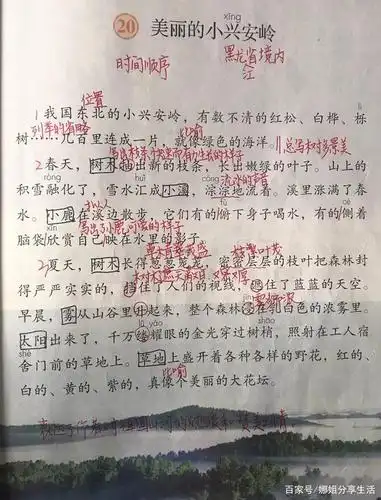 xīng
20 美丽的小兴安岭
时间顺序
黑龙江省境内
位置
1我国东北的小兴安岭，有数不清的红松、白桦、栎
列举的省略
比喻
树……几百里连成一片，就像绿色的海洋。
总写树多景美
2春天，树木抽出新的枝条，长出嫩绿的叶子。山上的
róng
积雪融化了，雪水汇成小溪，淙淙地流着。溪里涨满了春
拟人
水。小鹿在溪边散步，它们有的俯下身子喝水，有的侧着
写出小鹿可爱的样子
脑袋欣赏自己映在水里的影子。
夏天，树木长得葱葱茏茏，密密层层的枝叶把森林封
得严严实实的，挡住了人们的视线，遮住了蓝蓝的天空。
早晨，雾从山谷里升起来，整个森林浸在乳白色的浓雾里。
太阳出来了，千万缕耀眼的金光穿过树梢，照射在工人宿
shè
舍门前的草地上。草地上盛开着各种各样的野花，红的、
比喻
白的、黄的、紫的，真像个美丽的大花坛。
百家号/娜姐分享生活